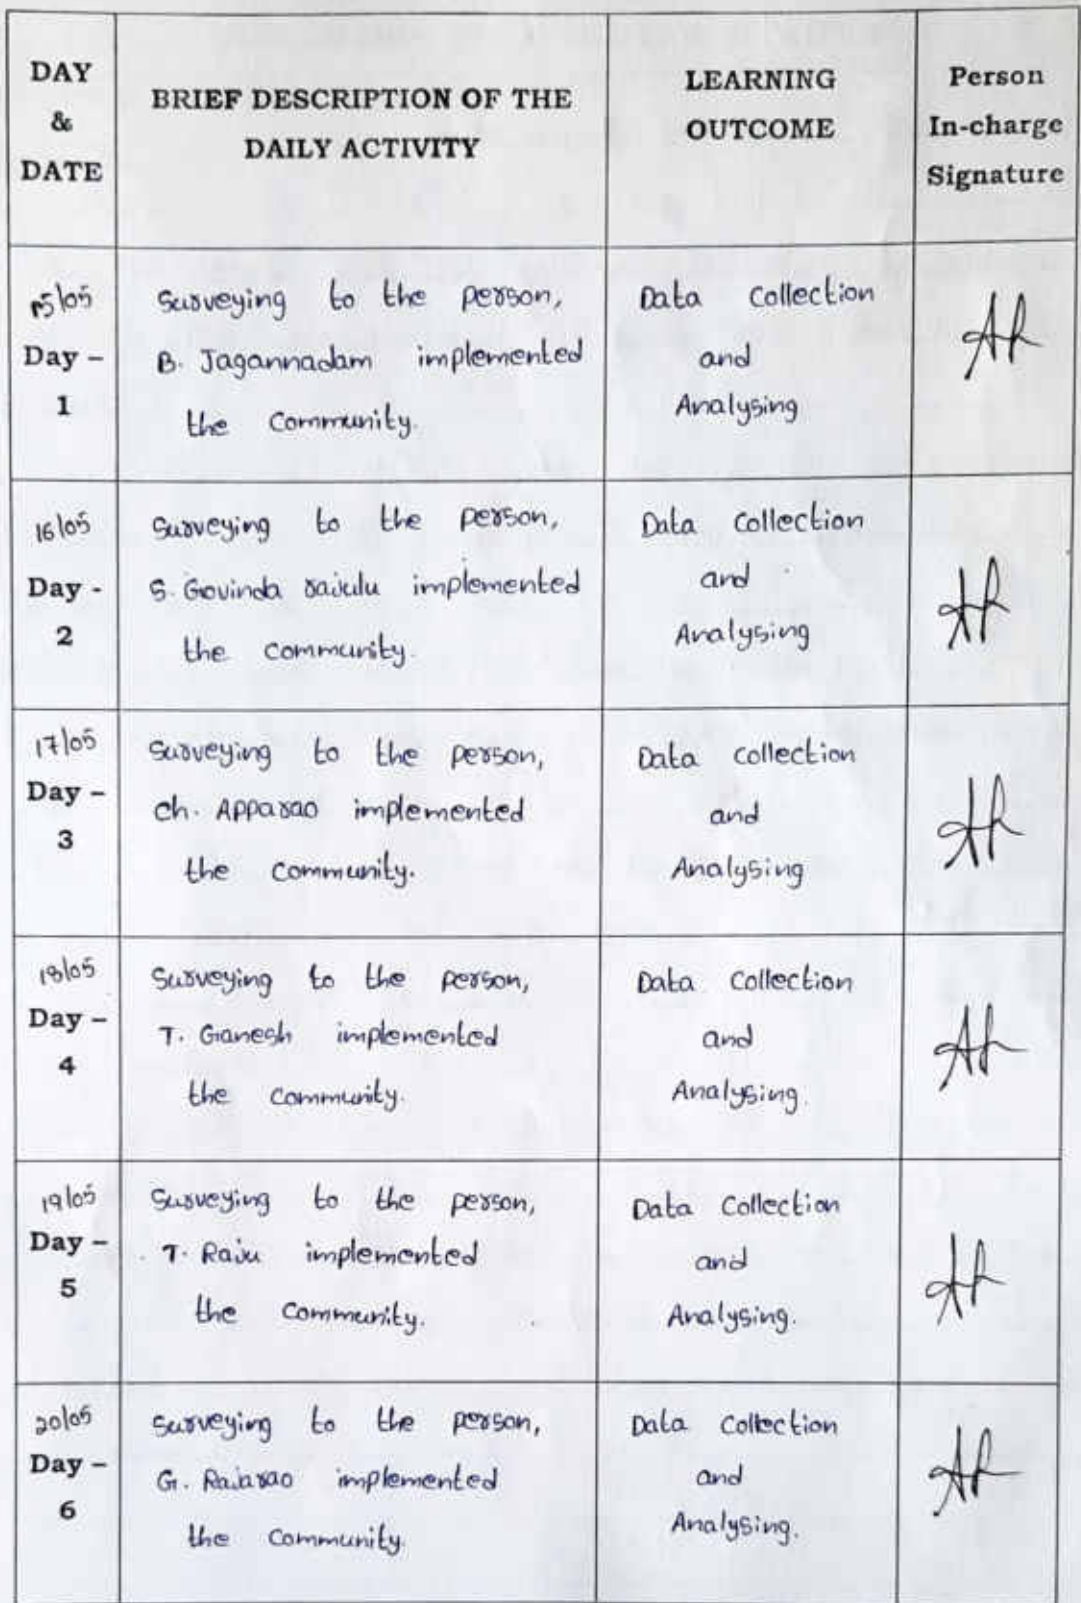 DAY
&
DATE
BRIEF DESCRIPTION OF THE
DAILY ACTIVITY
LEARNING
OUTCOME
Person
In-charge
Signature
15/05
Day -
1
Surveying to the person,
B. Jagannadam implemented
the Community.
Data Collection
and
Analysing
16/05
Day -
2
Surveying to the person,
S. Govinda rajulu implemented
the community.
Data Collection
and
Analysing
17/05
Day -
3
Surveying to the person,
Ch. Apparao implemented
the Community.
Data Collection
and
Analysing
18/05
Day -
4
Surveying to the person,
T. Ganesh implemented
the Community.
Data Collection
and
Analysing.
19/05
Day -
5
Surveying to the person,
T. Raju implemented
the Community.
Data Collection
and
Analysing.
20/05
Day -
6
Surveying to the person,
G. Rajarao implemented
the Community.
Data Collection
and
Analysing.